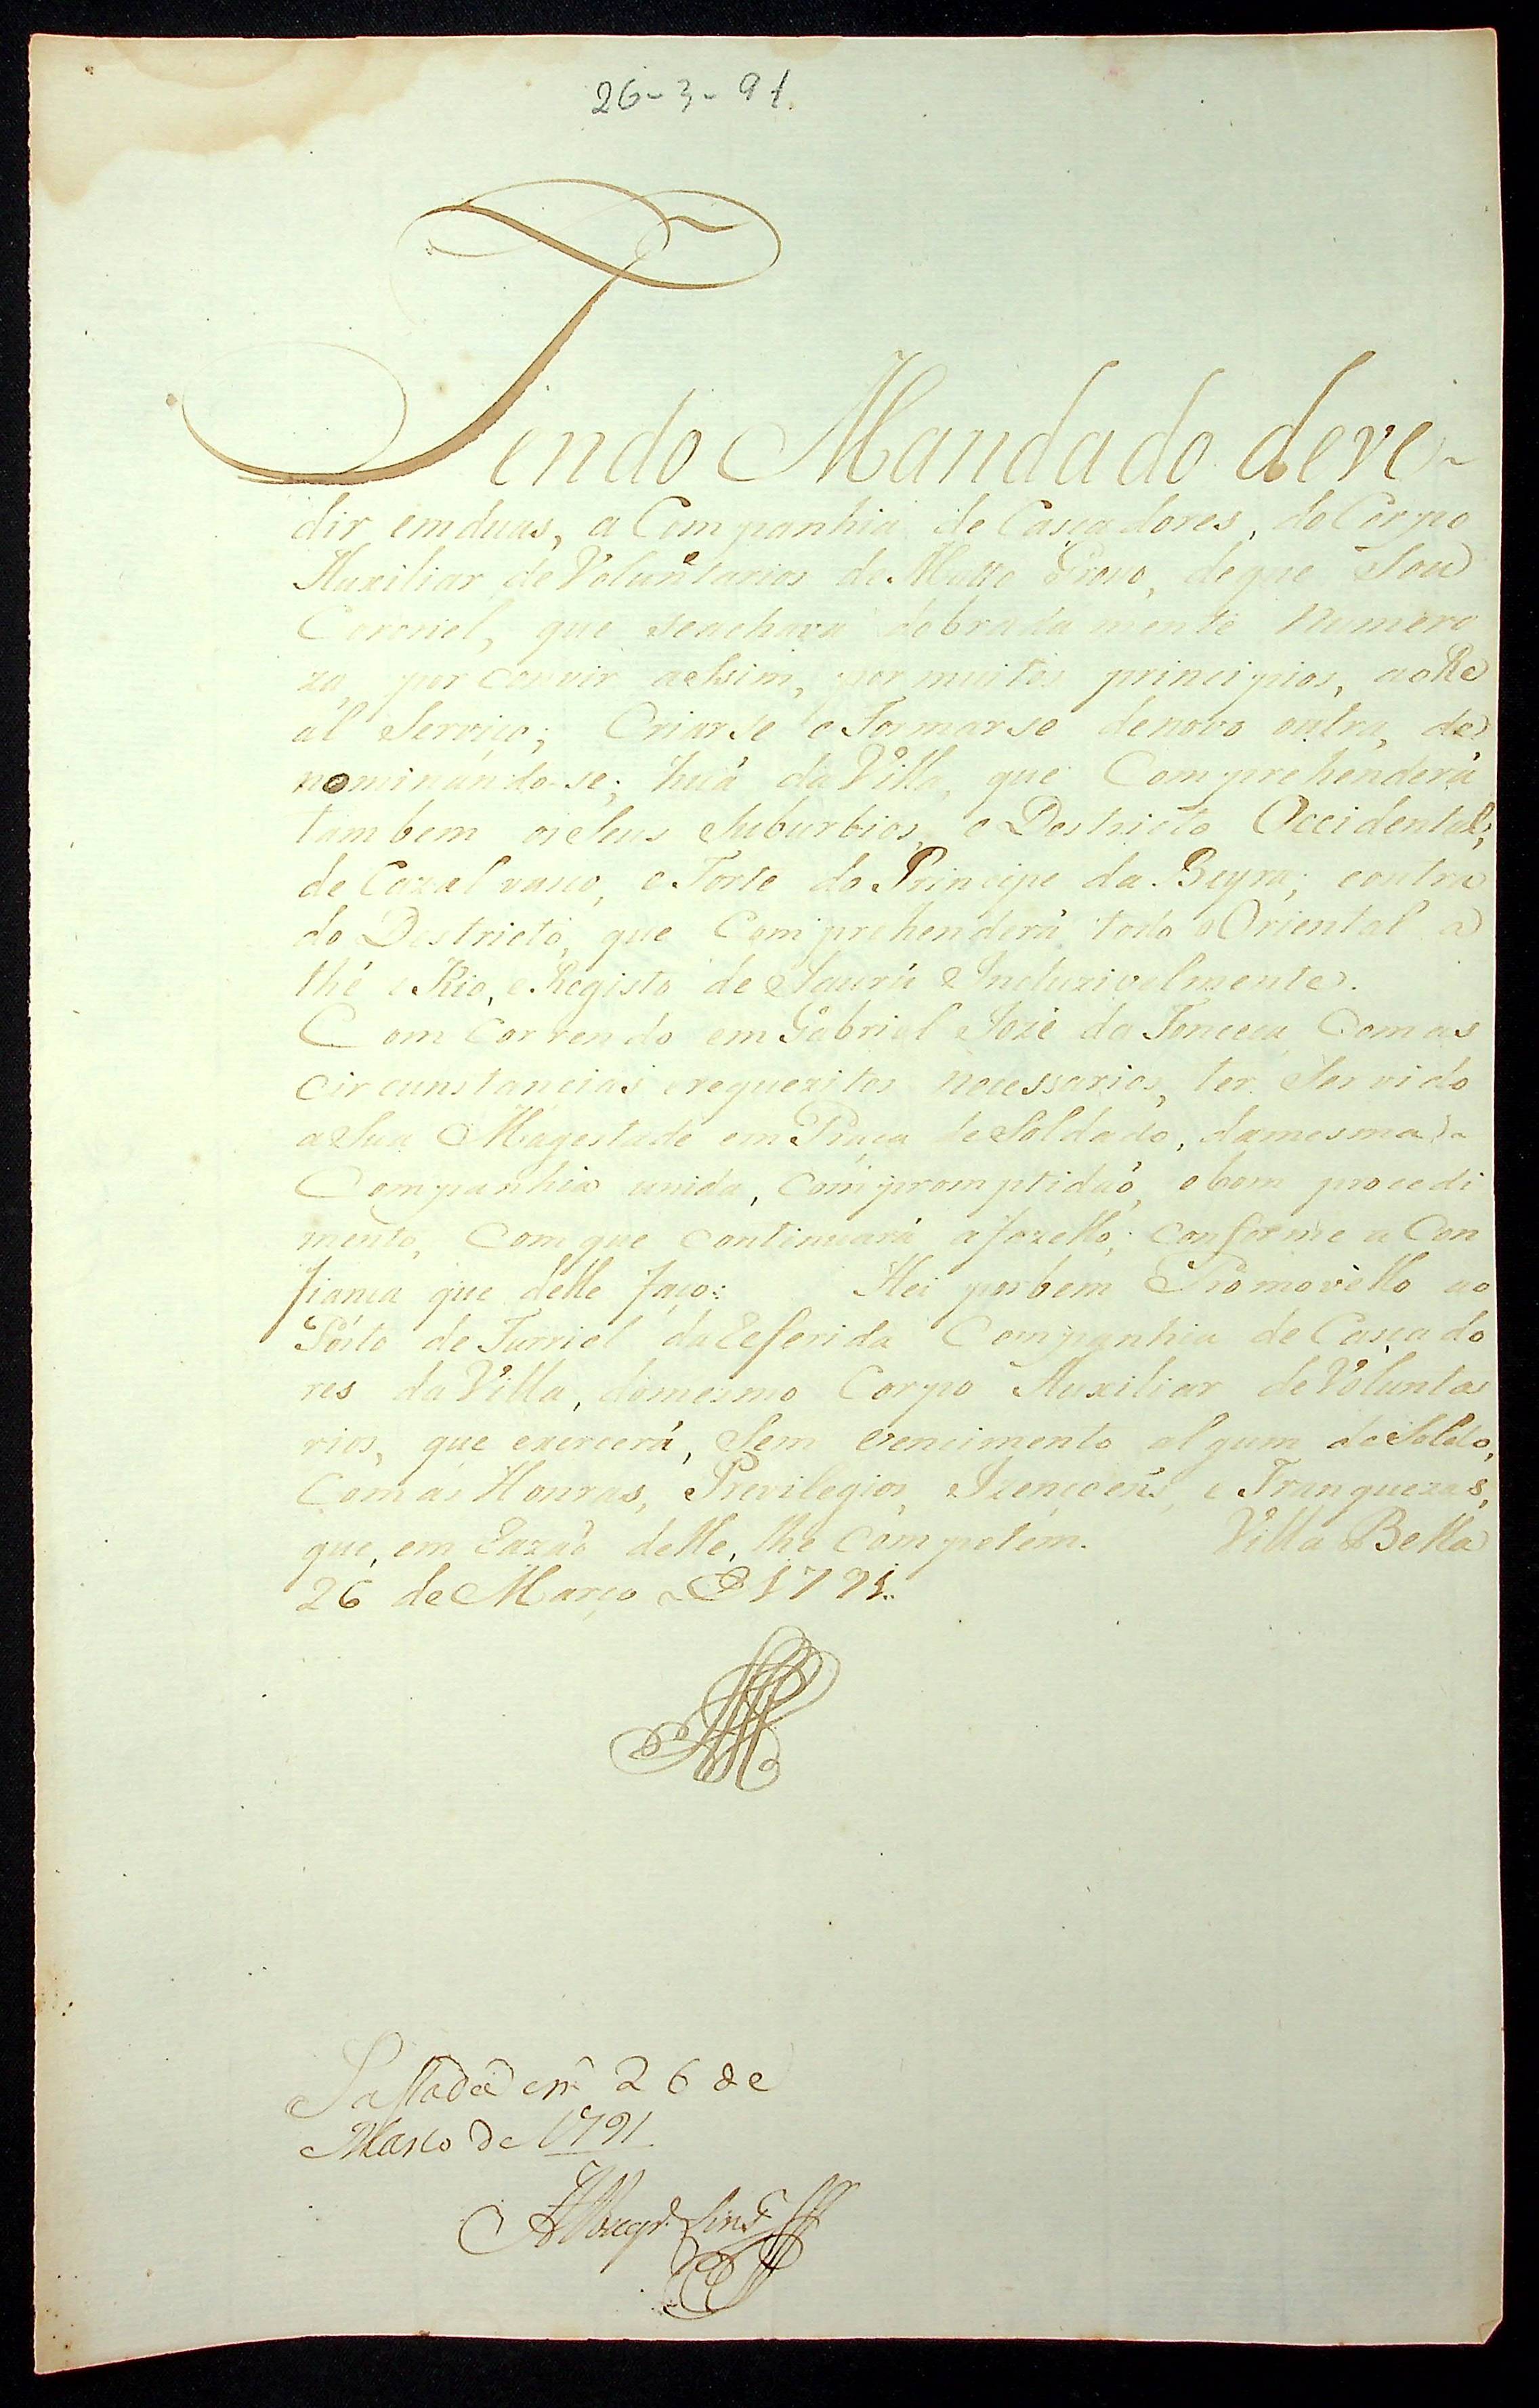 26-3-91.
Tendo Mandado deve-
dir emduas, a Companhia de Casçadores, do Corpo
Auxiliar de Voluntarios de Matto Groço, deque Sou
Coronel, que seachava dobrada mente Numero
za, por convir assim, por muitos principios, aoRe
al Serviço; Criarse e Formarse denovo outra, de
nominando-se; huã da Villa, que Comprehenderá
tambem os Seus Suburbios, e Destricto Occidental,
de Cazal vasco, e Forte do Principe da Beyra; eoutra
do Destricto, que Comprehenderá todo o Oriental a
thé o Rio, e Registo de Jaurú Incluzivelmente.
Comcorrendo em Gabriel Jozé da Fonceca Comas
circunstancias erequezitos necessarios, ter Servido
a Sua Magestade em Praça de Soldado, damesma
Companhia unida, Compromptidaõ, ebom procedi
mento, Comque continuará afazello; conforme a Con
fiança que delle faço: Hei porbem Promovello ao
Pósto de Furriel da Referida Companhia de Casçado
res da Villa, domesmo Corpo Auxiliar de Volunta
rios, que exercerá, Sem vencimento algum de Soldo,
Comas Honras, Previlegios, Izençoens, e Franquezas,
que, em Razaõ delle, lhe Competem. Villa Bella
26 de Março de 1791.
Passada em 26 de
Marco de 1791